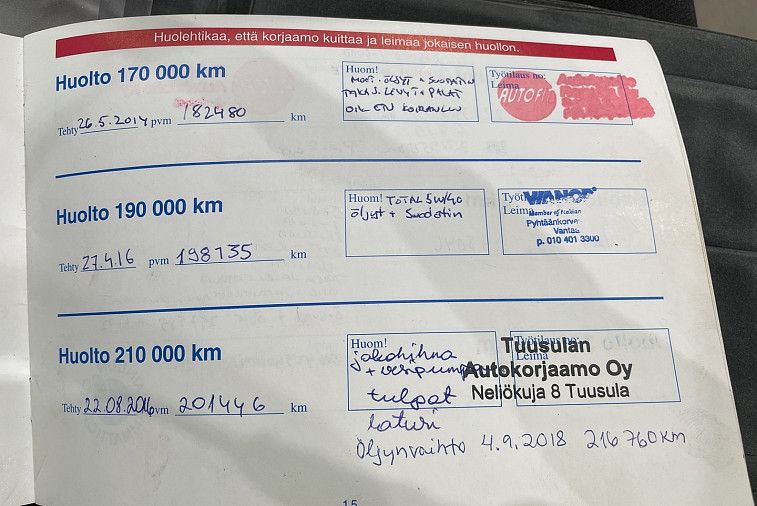 Huolehtikaa, että korjaamo kuittaa ja leimaa jokaisen huollon.
Huolto 170 000 km
Huom!
MOOT. ÖLJYT + SUODATIN
TAKA J. LEVYT + PALAT
OIK ETU
Työtilaus no:
Leima
AUTOFIT
Tehty 26.5.2014 pvm 182480 km
Huolto 190 000 km
Huom! TOTAL 5W/40
öljyt + Suodatin
Leima
WIANOR
Member of Nokian
Pyhtäänkorva
Vantaa
p. 010 401 3300
Tehty 27.4.16 pvm 198735 km
Huolto 210 000 km
Huom!
jakohihna
+ vesipumppu
tulpat
laturi
Työtilaus no:
Leima
Tuusulan
Autokorjaamo Oy
Neliökuja 8 Tuusula
Tehty 22.08.2016 pvm 201446 km
Öljynvaihto 4.9.2018 216760 km
15